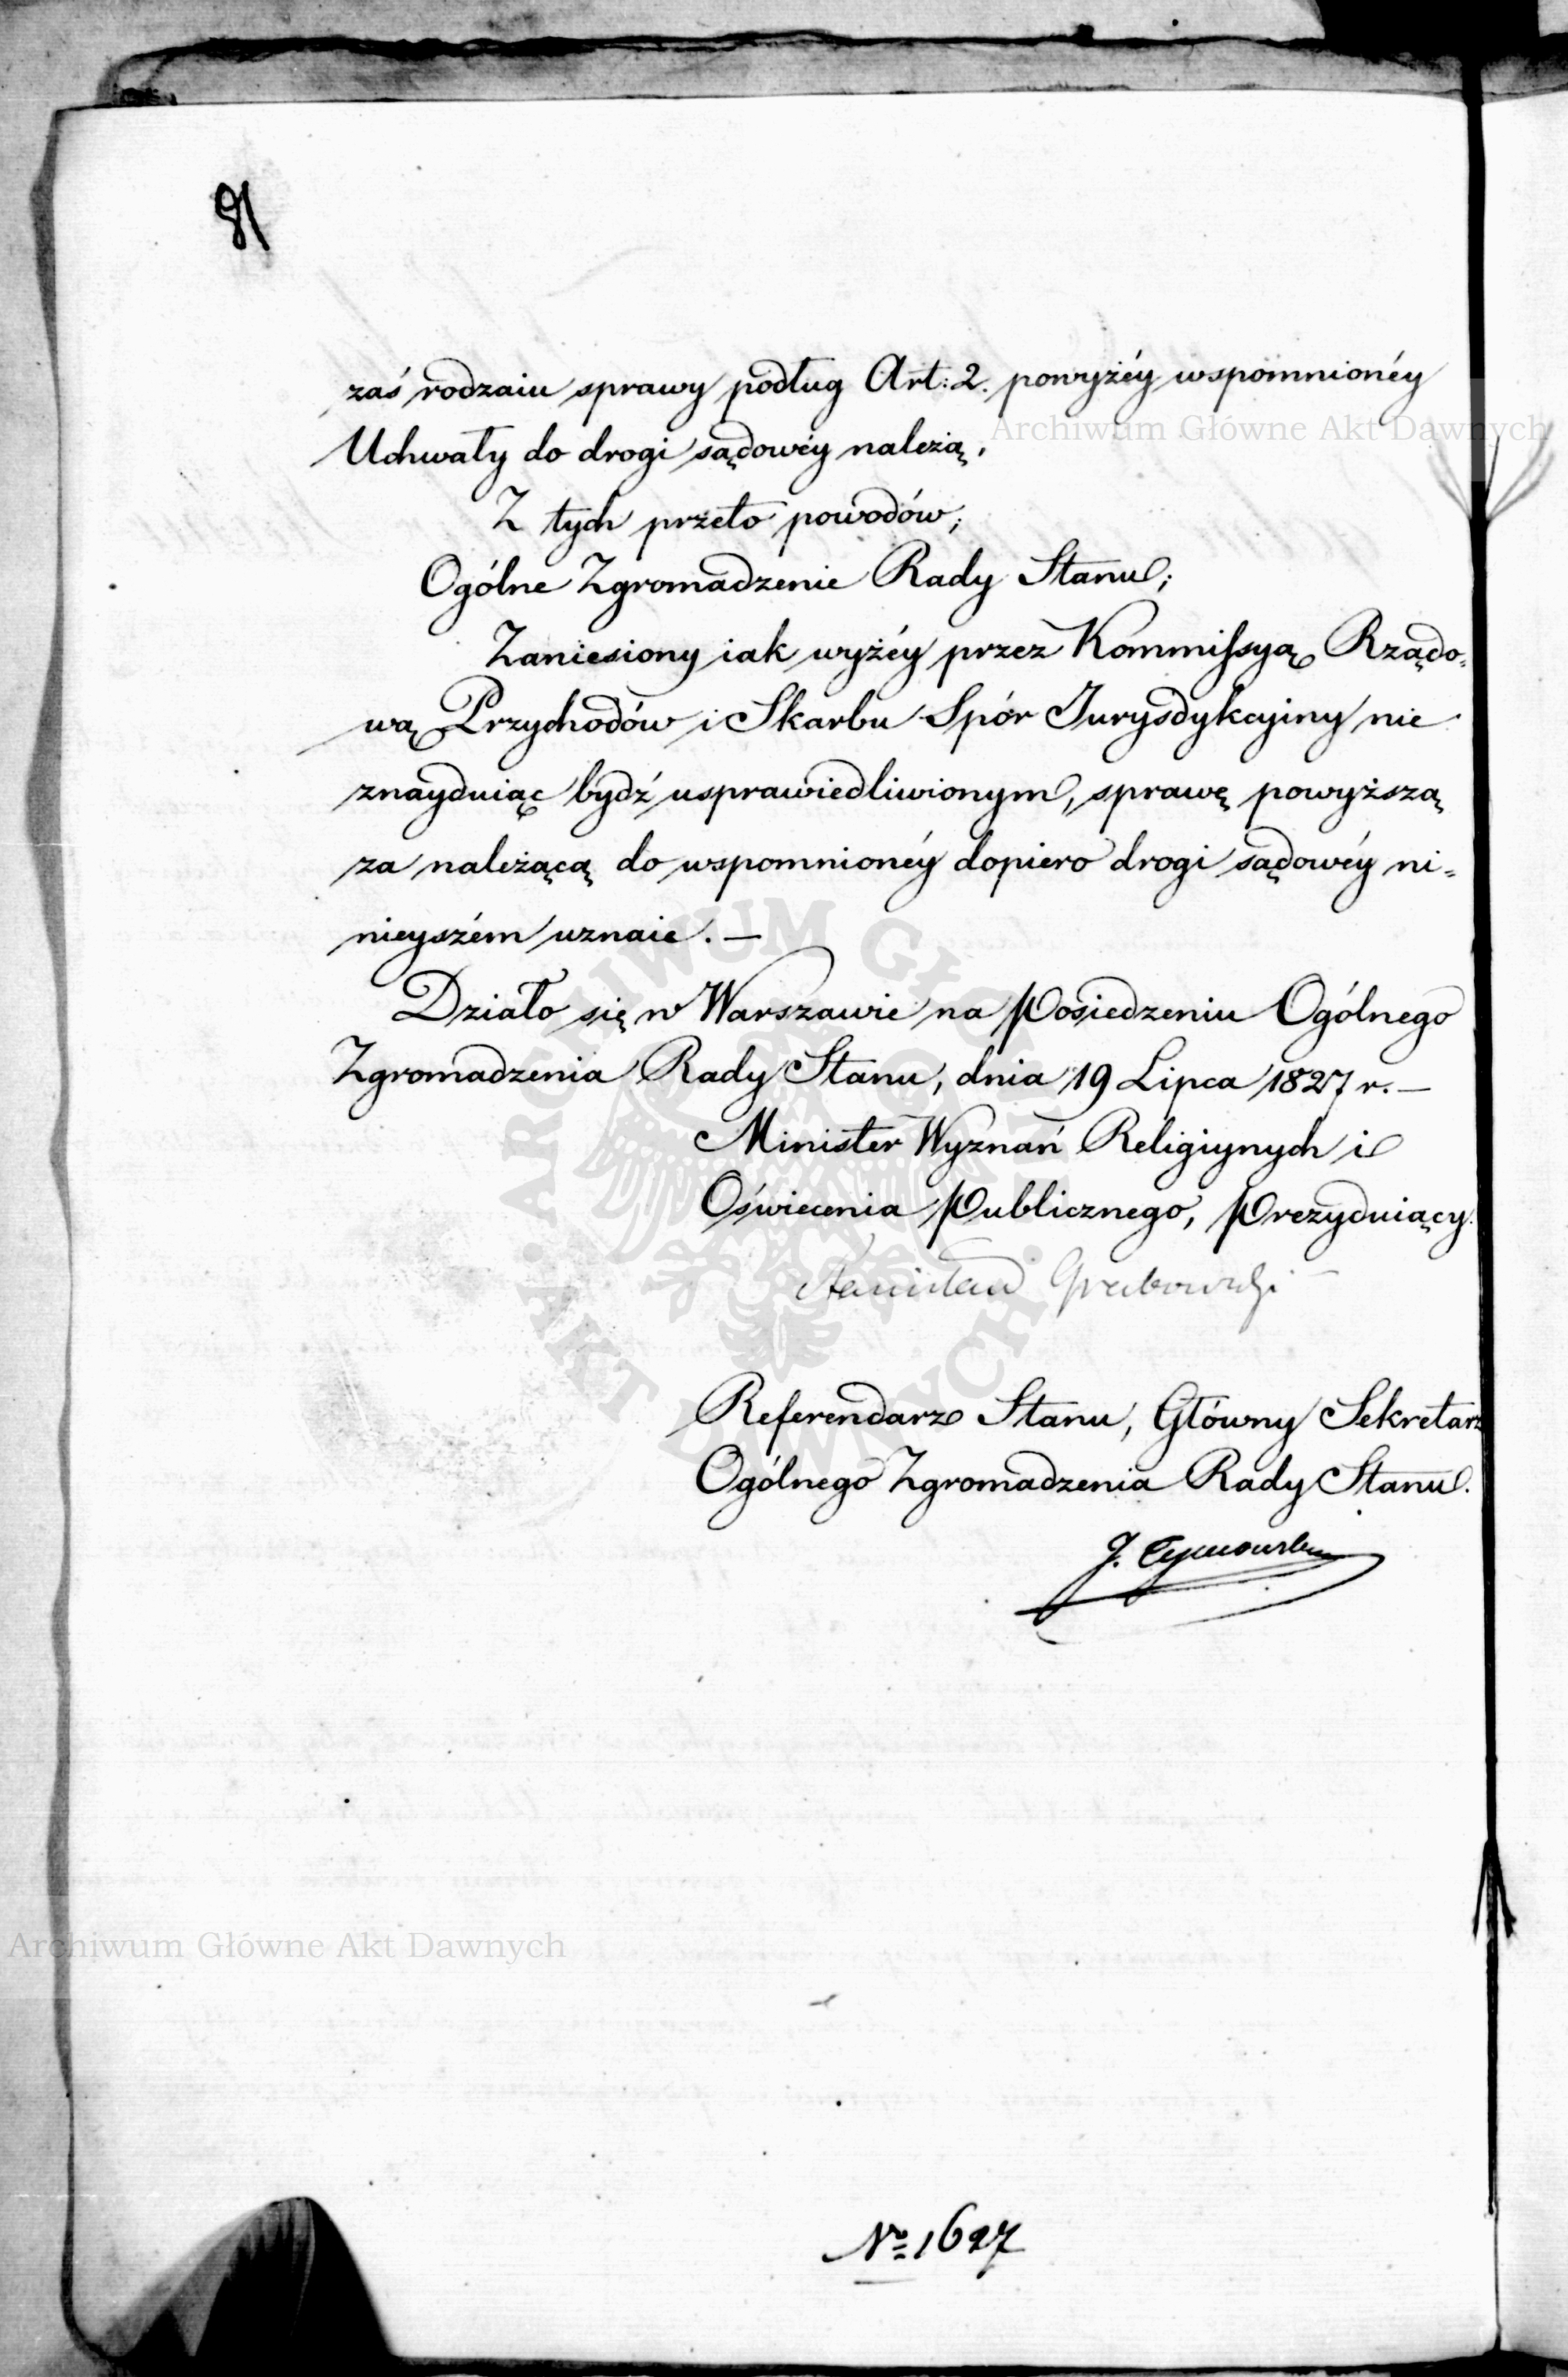 81
zaś rodzaiu sprawy podług Art: 2. powyżéy wspomnionéy
Archiwum Główne Akt Dawnych
Uchwały do drogi sądowéy należą,
Z tych przeto powodów;
Ogólne Zgromadzenie Rady Stanu;
Zaniesiony iak wyżéy przez Kommissyą Rządo-
wą Przychodów i Skarbu Spór Jurysdykcyiny nie
znayduiąc bydź usprawiedliwionym, sprawę powyższą
za należącą do wspomnionéy dopiero drogi sądowéy ni-
nieyszém uznaie. —
Działo się w Warszawie na Posiedzeniu Ogólnego
Zgromadzenia Rady Stanu, dnia 19 Lipca 1827 r. —
Minister Wyznań Religiynych i
Oświecenia Publicznego, Prezyduiący.
Stanisław Grabowski
ARCHIWUM GŁÓWNE · AKT DAWNYCH ·
Referendarz Stanu, Główny Sekretarz
Ogólnego Zgromadzenia Rady Stanu.
J. Tymowski
Archiwum Główne Akt Dawnych
No 1627